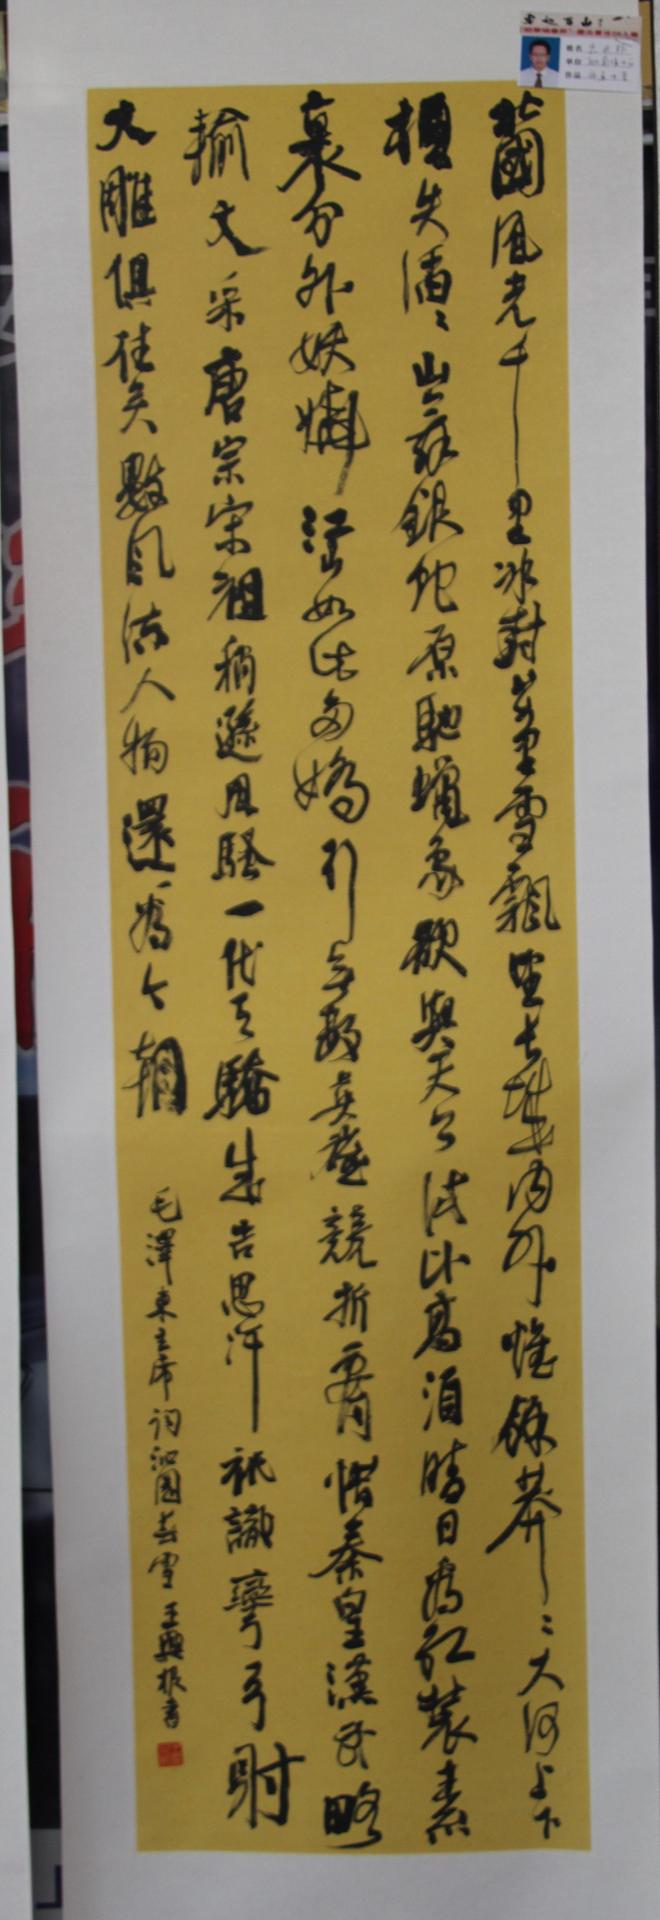 北國風光千里冰封萬里雪飄望長城內外惟餘莽々大河上下
頓失滔々山舞銀蛇原馳蠟象欲與天公試比高須晴日為紅裝素
裹分外妖嬈江山如此多嬌引無數英雄競折腰惜秦皇漢武略
輸文采唐宗宋祖稍遜風騷一代天驕成吉思汗祇識彎弓射
大雕俱往矣數風流人物還看今朝
毛澤東主席詞沁園春雪 王興振書
姓名
单位
作品